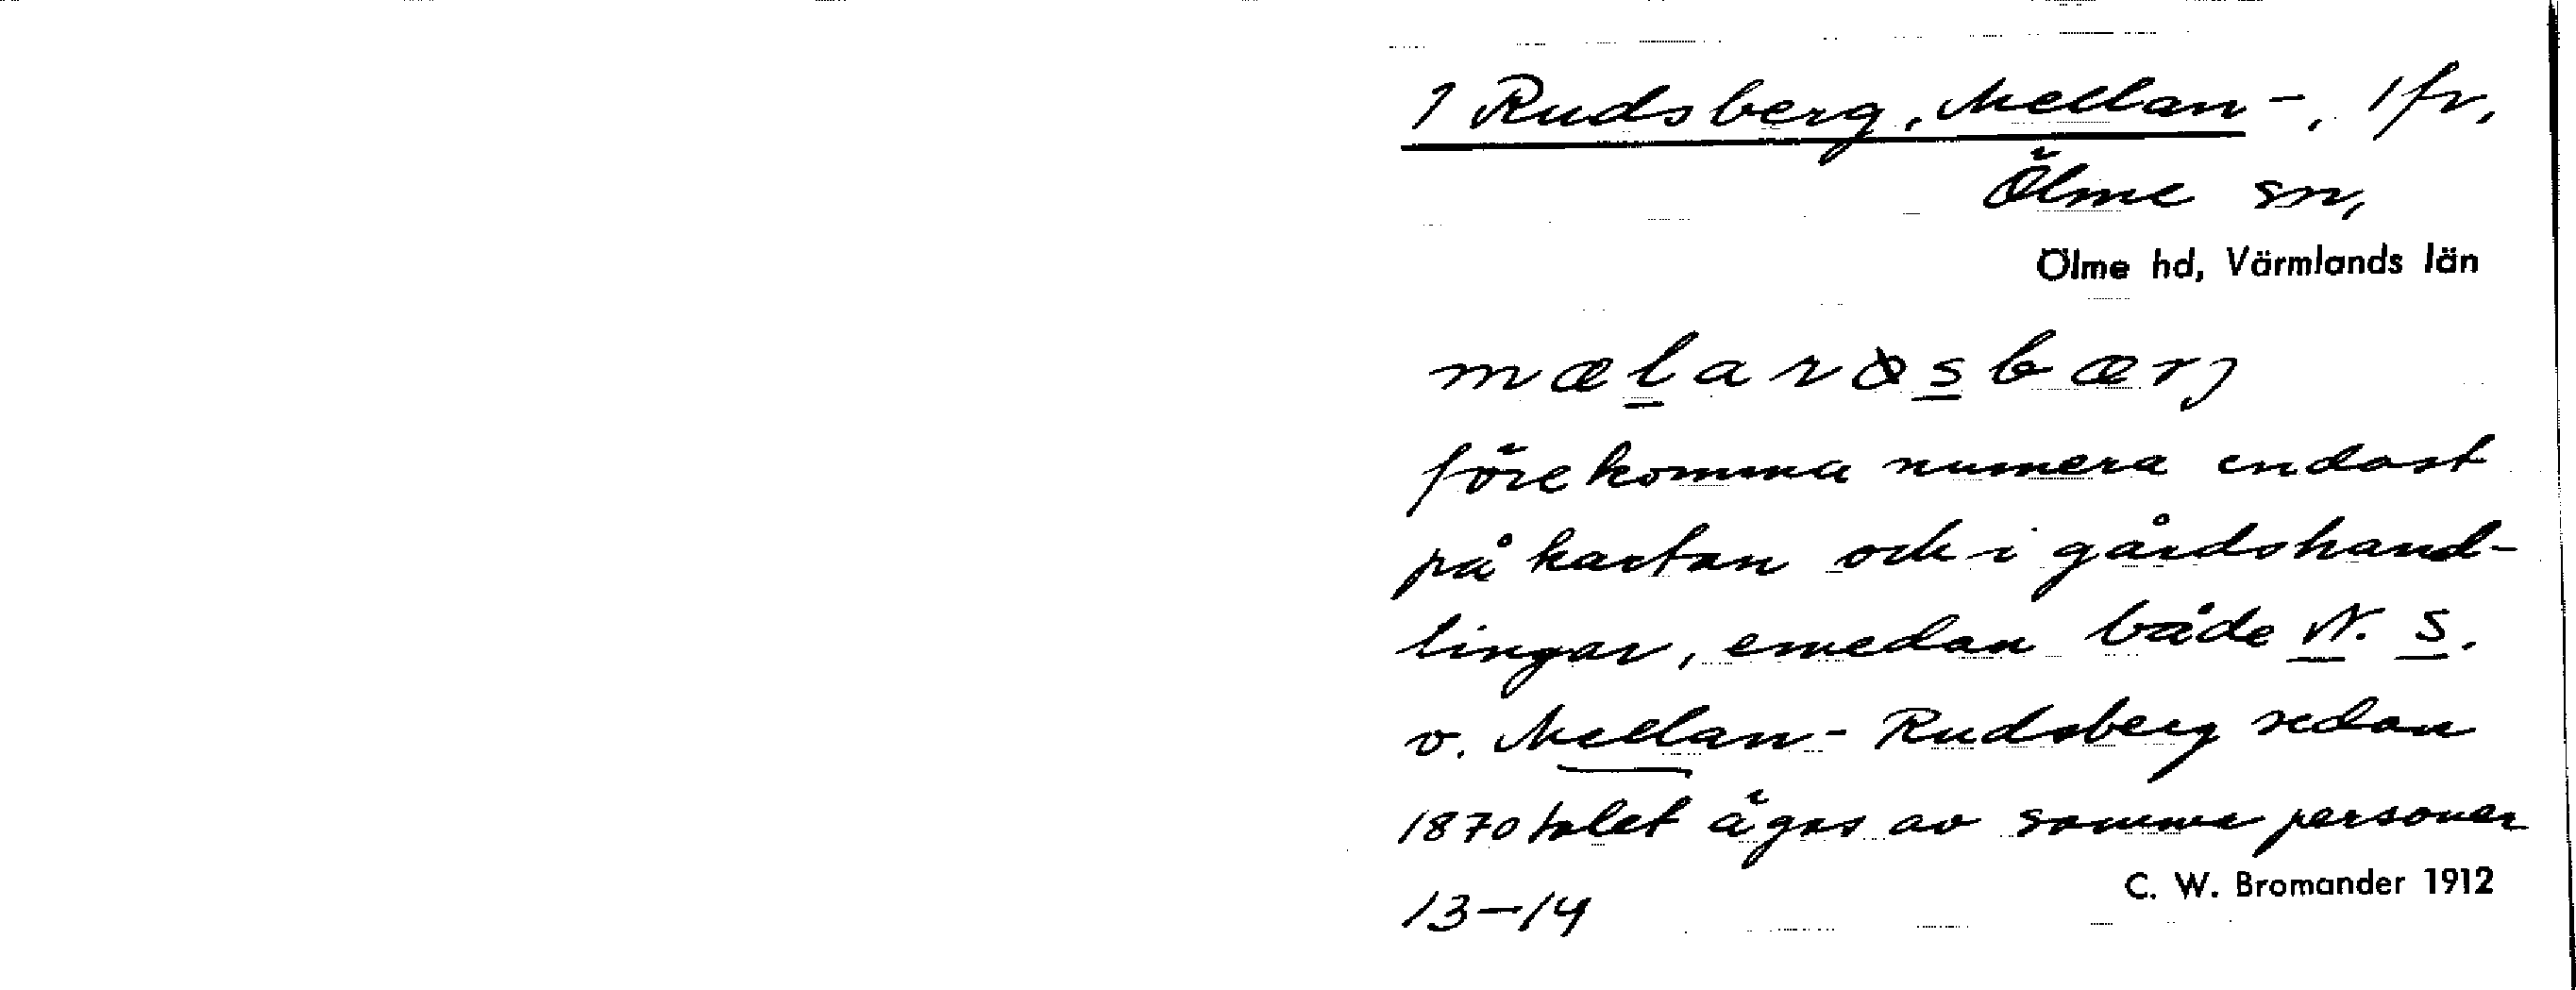 1 Rudsberg, Mellan-, 1 fr,
Ölme sn,
Ölme hd, Värmlands län
mælarøsbærj
förekomma numera endast
på kartan och i gårdshand-
lingar, emedan både N. S.
o. Mellan-Rudsberg sedan
1870 talet ägas av samma personer
13-14
C. W. Bromander 1912